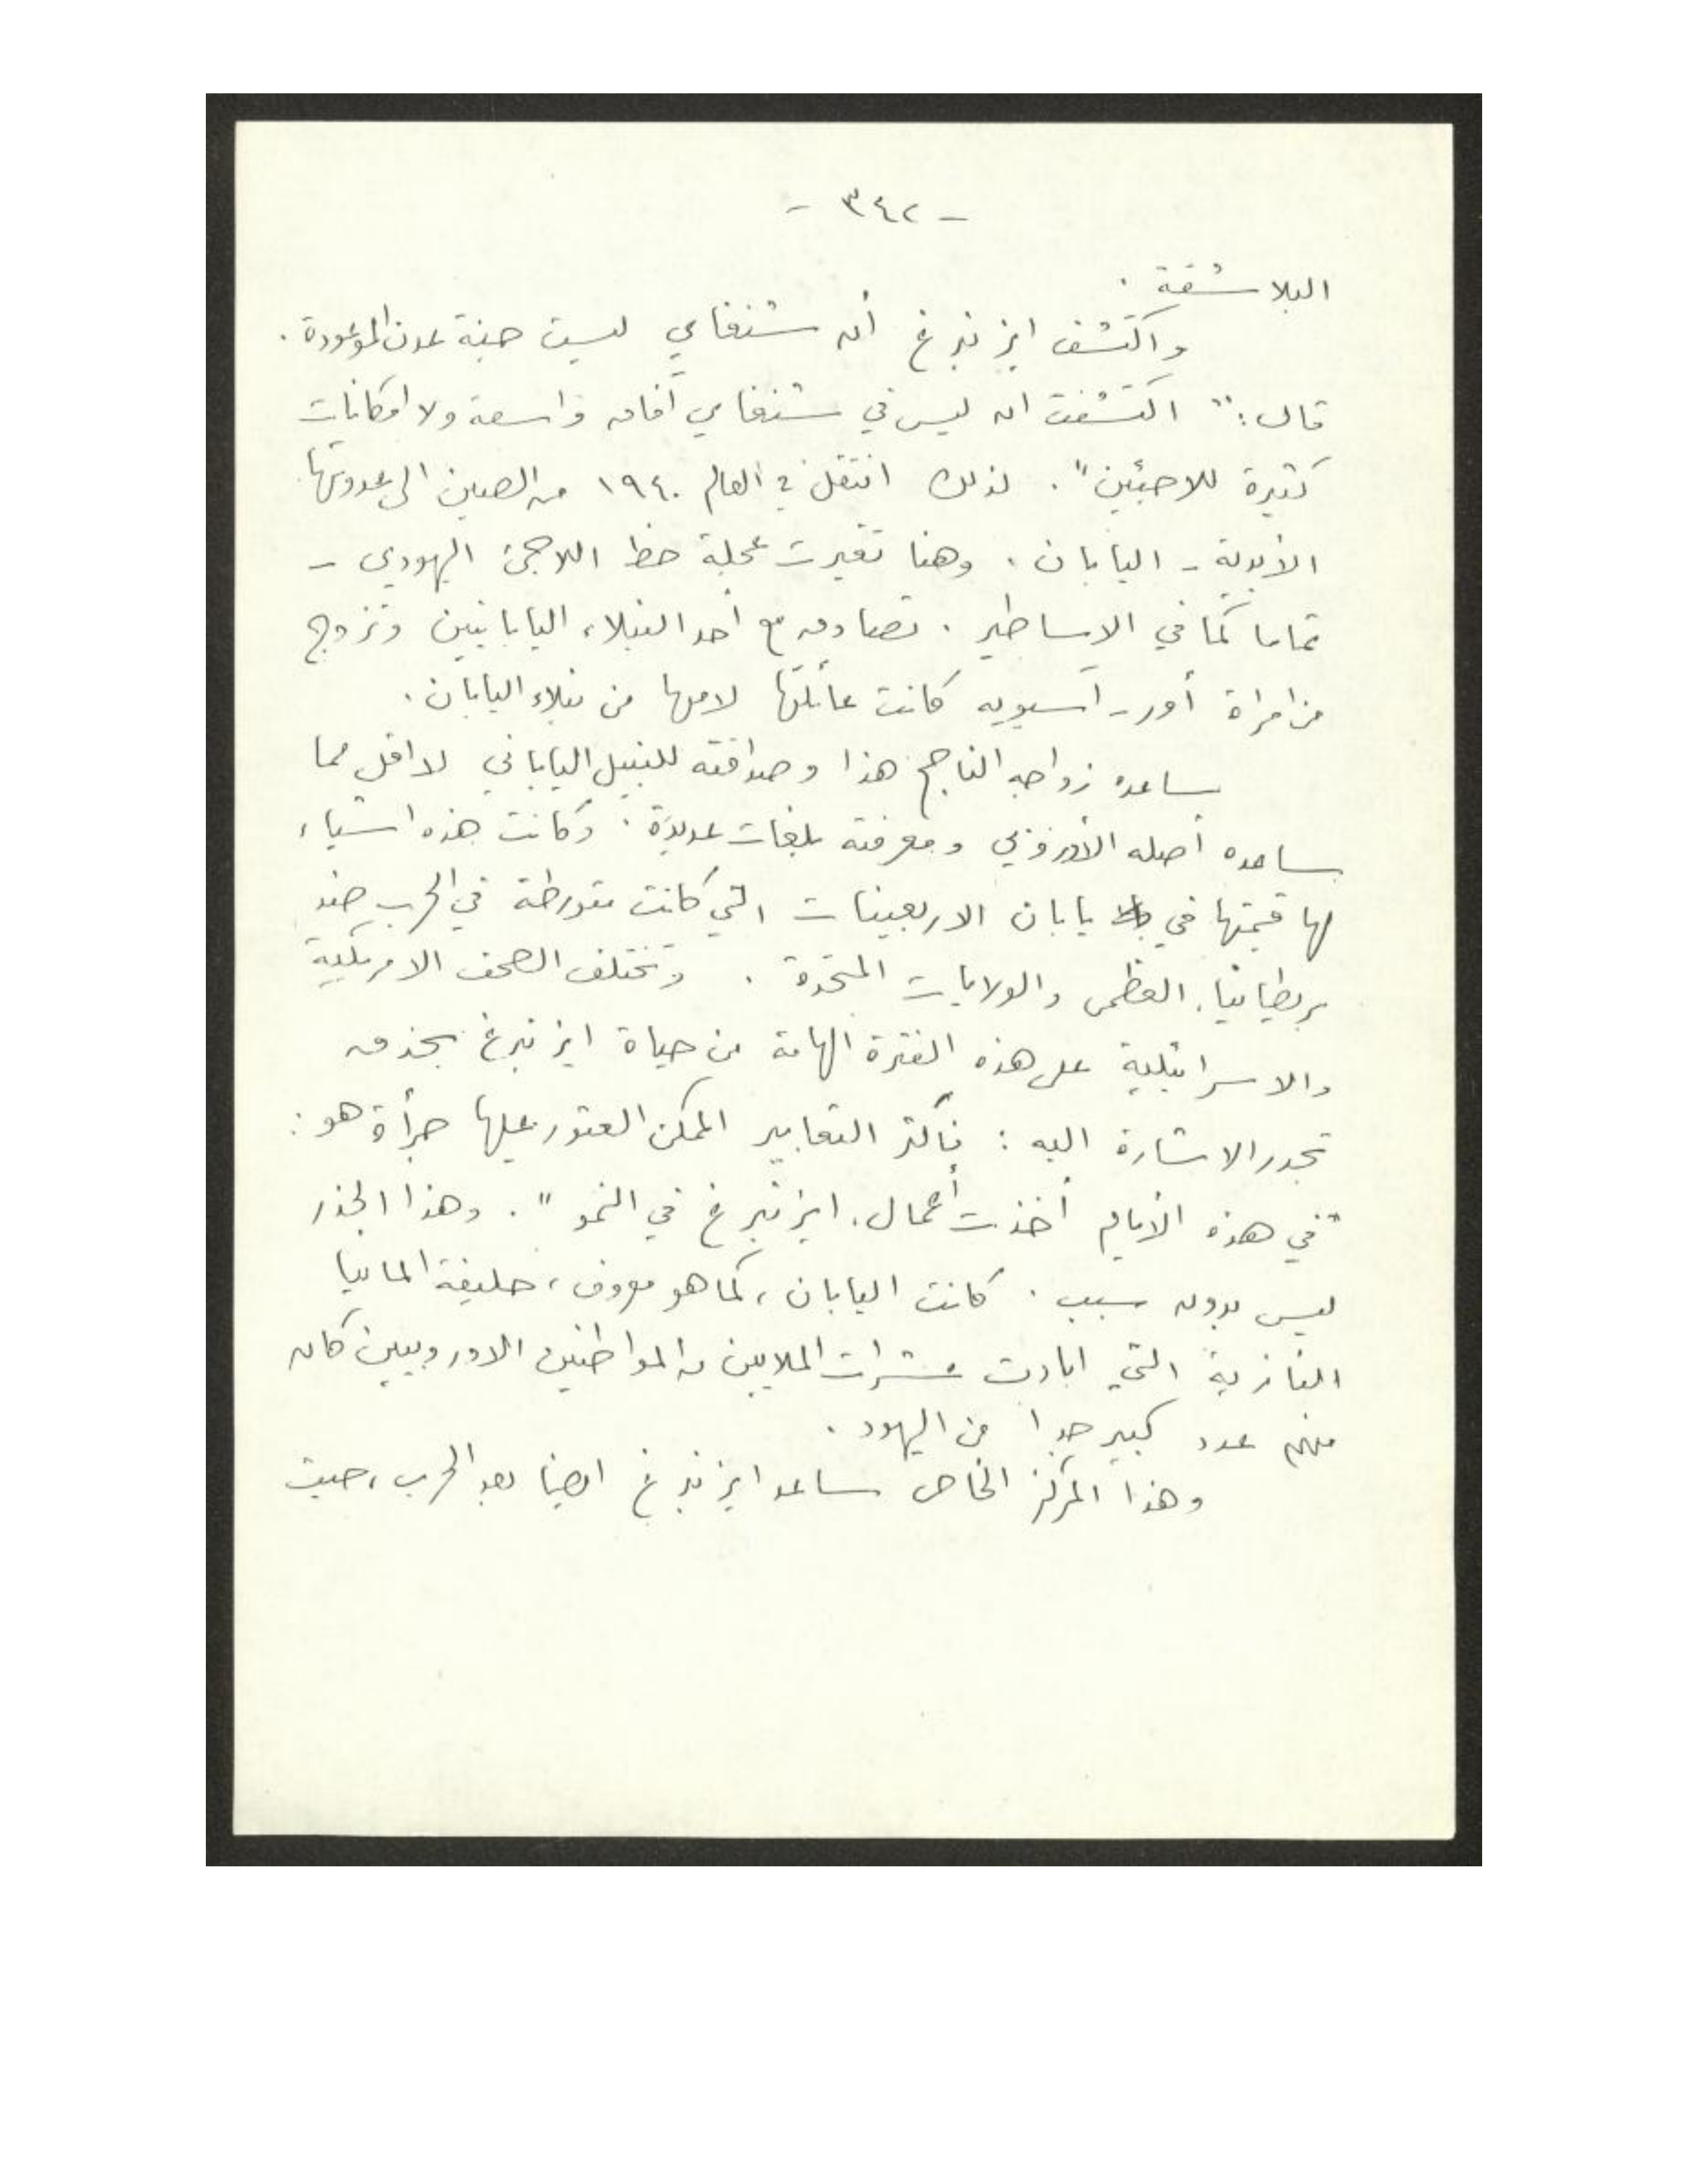 - ٣٤٢ -
البلاشفة .
واكتشف ايزنبرغ أن شنغهاي ليست جنة عدن الموعودة .
قال : " اكتشفت ان ليس في شنغهاي آفاق واسعة ولا امكانات
كثيرة للاجئين " . لذلك انتقل في العام ١٩٤٠ من الصين الى عدوتها
الأبدية - اليابان . وهنا تغيرت عجلة حظ اللاجئ اليهودي -
تماما كما في الاساطير . تصادق مع أحد النبلاء اليابانيين وتزوج
من امرأة أور - آسيويه كانت عائلتها لامها من نبلاء اليابان .
ساعده زواجه الناجح هذا وصداقته للنبيل الياباني لا اقل مما
ساعده أصله الأوروبي ومعرفته بلغات عديدة . وكانت هذه اشياء
لها قيمتها في يابان الاربعينات التي كانت متورطة في الحرب ضد
بريطانيا العظمى والولايات المتحدة . وتختلف الصحف الامريكية
والاسرائيلية على هذه الفترة الهامة من حياة ايزنبرغ بحذر
تجدر الاشارة اليه : فأكثر التعابير الممكن العثور عليها جرأة هو :
" في هذه الأيام أخذت أعمال ايزنبرغ في النمو " . وهذا الحذر
ليس بدون سبب . كانت اليابان ، كما هو معروف ، حليفة المانيا
النازية التي ابادت عشرات الملايين من المواطنين الاوروبيين كان
منهم عدد كبير جدا من اليهود .
وهذا المركز الخاص ساعد ايزنبرغ ايضا بعد الحرب ، حيث